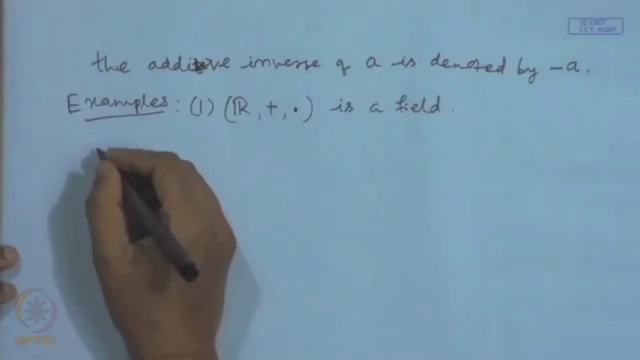 © CET
I.I.T. KGP
the additive inverse of a is denoted by -a.
Examples: (1) (ℝ, +, ·) is a field.
NPTEL